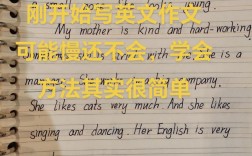 刚开始写英文作文
young.
My mother is kind and hard-working
可能慢还不会，学会
is a
方法其实很简单
company.
She likes cats very much. And she likes
singing and dancing. Her English is very